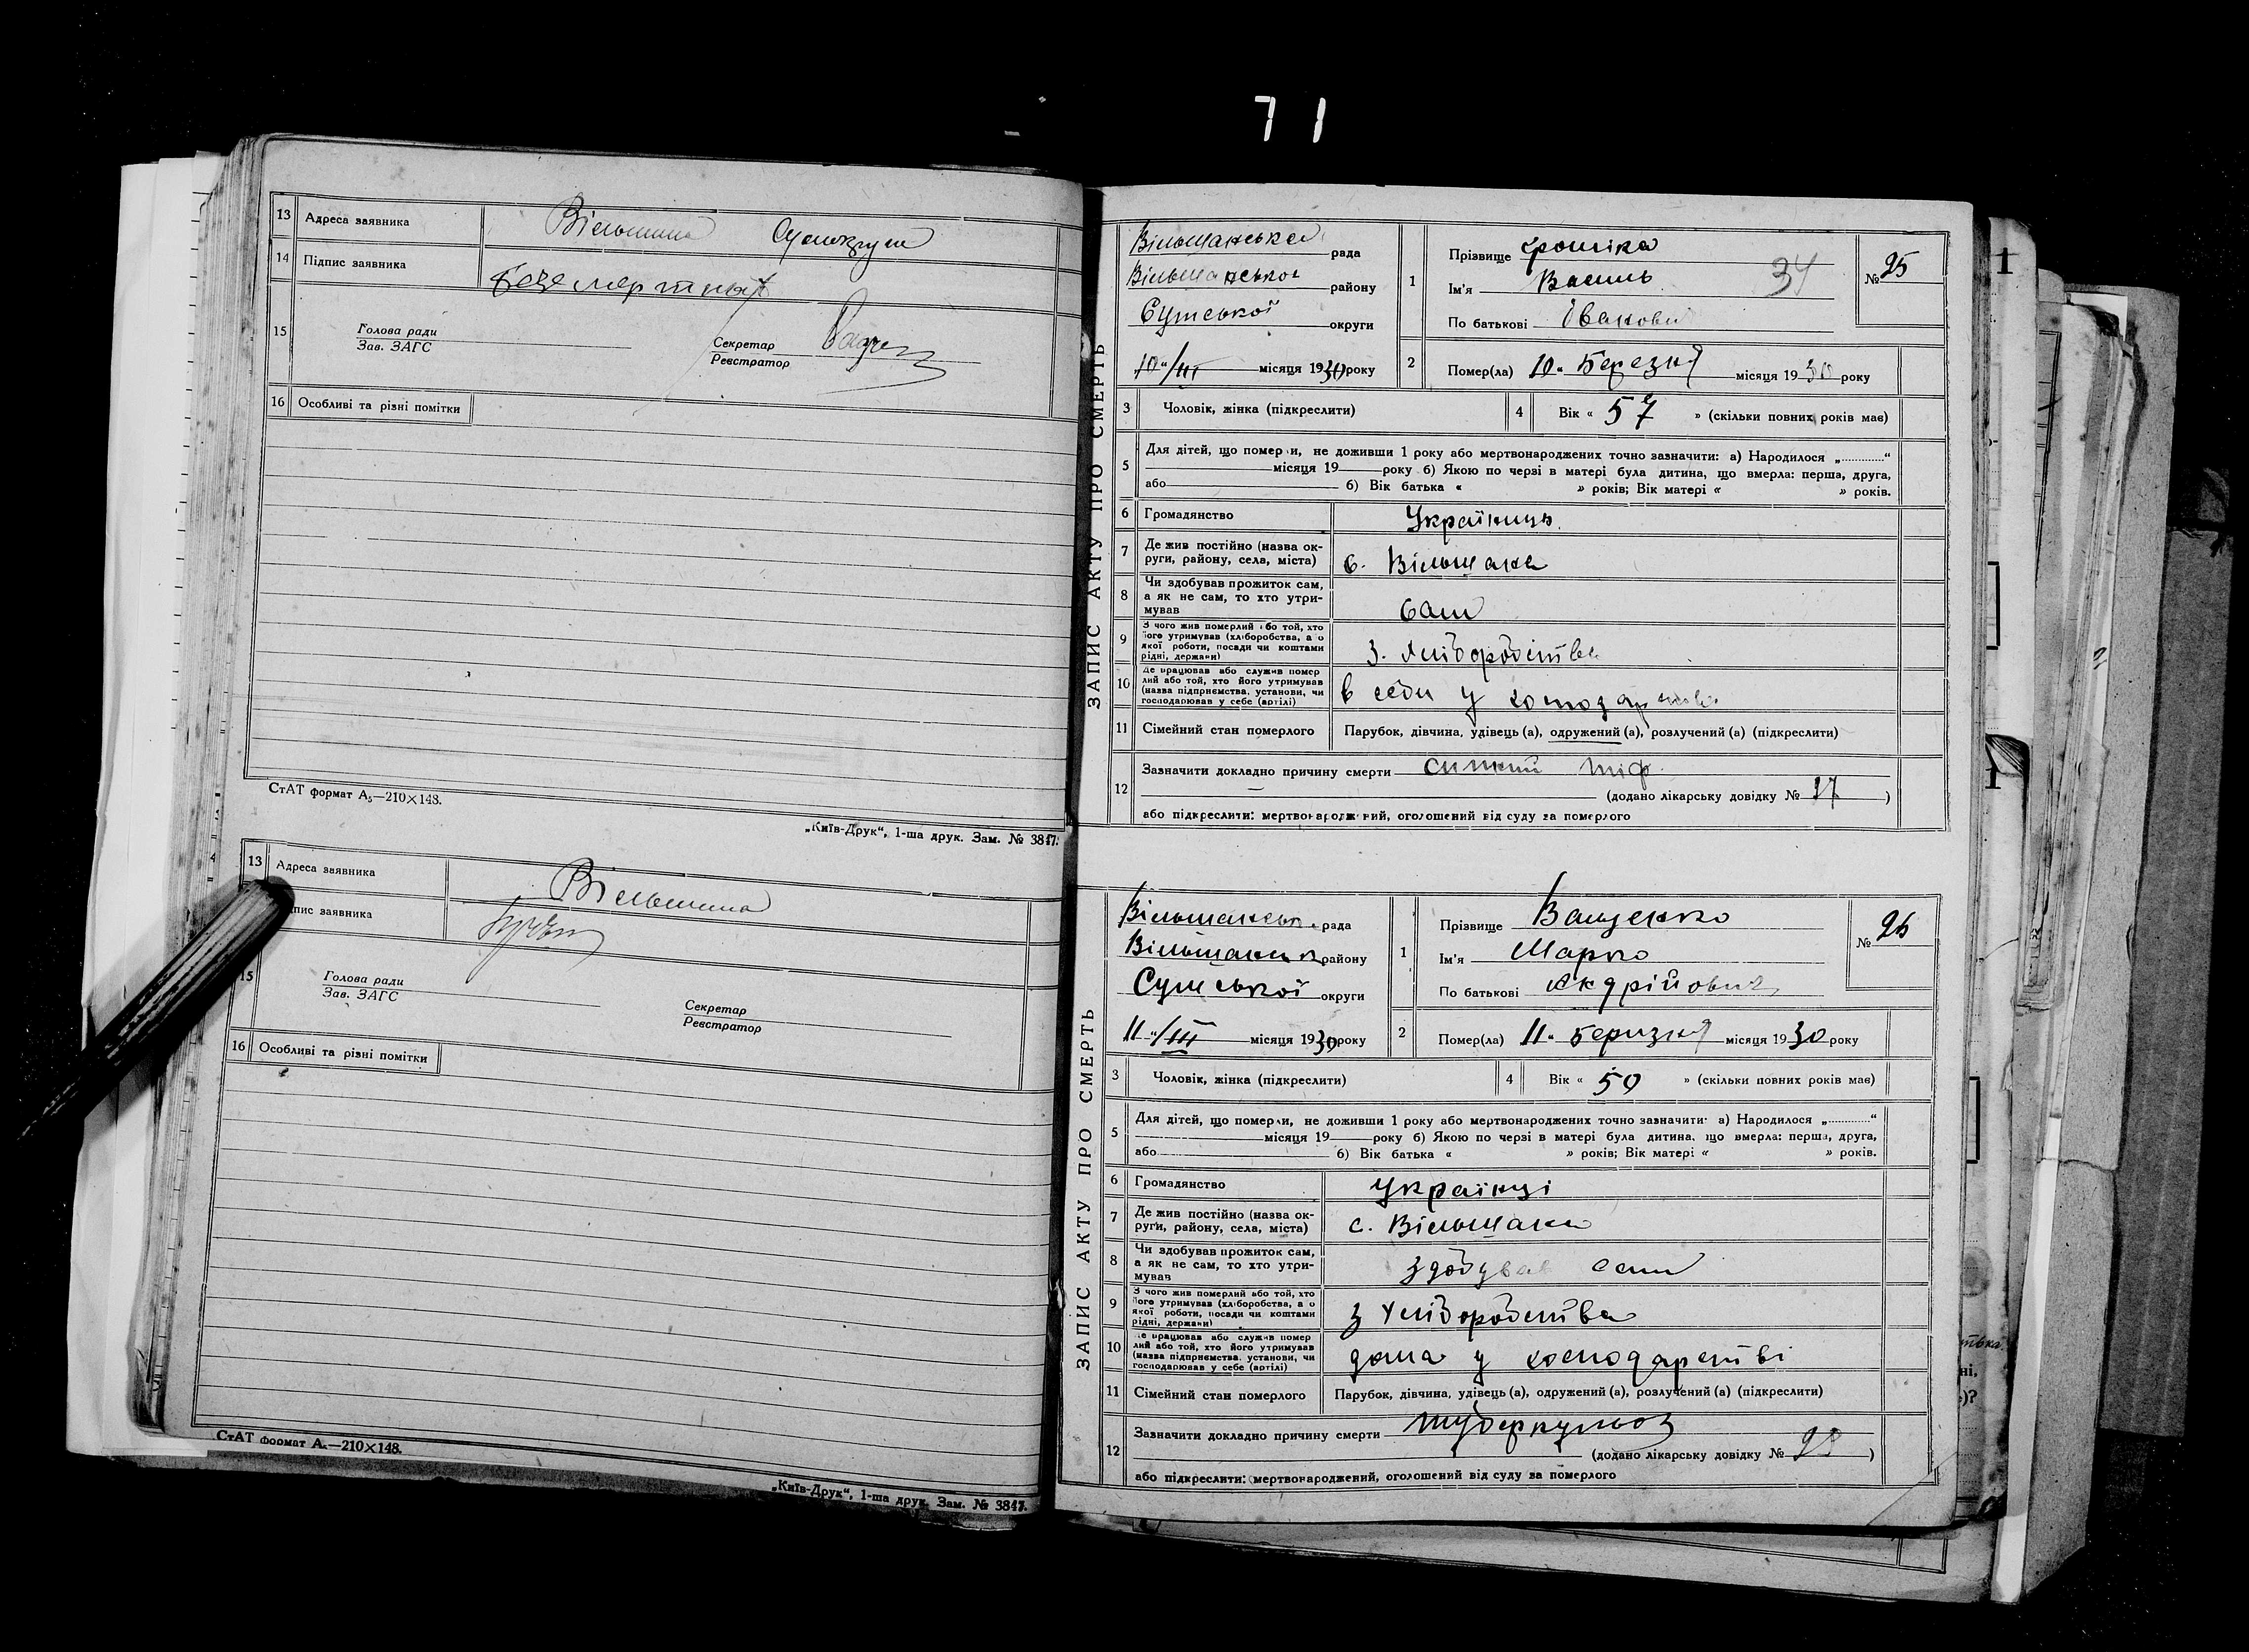 71
13 Адреса заявника Вільшана
14 Підпис заявника Безсмертная
15 Голова ради
Зав. ЗАГС
Секретар
Реєстратор
16 Особливі та різні помітки
СтАТ формат А₅—210×148.
„Київ-Друк“, 1-ша друк. Зам. № 3847.
13 Адреса заявника Вільшана
пис заявника
15 Голова ради
Зав. ЗАГС
Секретар
Реєстратор
16 Особливі та різні помітки
СтАТ формат А₅—210×148.
„Київ-Друк“, 1-ша друк. Зам. № 3847.
ЗАПИС АКТУ ПРО СМЕРТЬ
Вільшанська рада
Вільшанської району
Сумської округи
10 "/III місяця 1930 року
1 Прізвище
Ім'я Василь 34
По батькові Іванович
№ 25
2 Помер(ла) 10 " Березня місяця 1930 року
3 Чоловік, жінка (підкреслити)
4 Вік « 57 » (скільки повних років має)
5 Для дітей, що померли, не доживши 1 року або мертвонароджених точно зазначити: а) Народилося „............“
місяця 19 року б) Якою по черзі в матері була дитина, що вмерла: перша, друга,
або б) Вік батька « » років; Вік матері « » років.
6 Громадянство Українець
7 Де жив постійно (назва округи, району, села, міста) с. Вільшана
8 Чи здобував прожиток сам, а як не сам, то хто утримував сам
9 З чого жив померлий або той, хто його утримував (хліборобства, а о якої роботи, посади чи коштами рідні, держави) З хліборобства
10 Де працював або служив померлий або той, хто його утримував (назва підприємства, установи, чи господарював у себе (артілі) в себе у господарстві
11 Сімейний стан померлого Парубок, дівчина, удівець (а), одружений (а), розлучений (а) (підкреслити)
12 Зазначити докладно причину смерти сипний тіф
(додано лікарську довідку № 27 )
або підкреслити: мертвонароджений, оголошений від суду за померлого
ЗАПИС АКТУ ПРО СМЕРТЬ
Вільшанськ. рада
Вільшанськ району
Сумської округи
11 "/III місяця 1930 року
1 Прізвище Ващенко
Ім'я Марко
По батькові Андрійович
№ 26
2 Помер(ла) 11 " Березня місяця 1930 року
3 Чоловік, жінка (підкреслити)
4 Вік « 50 » (скільки повних років має)
5 Для дітей, що померли, не доживши 1 року або мертвонароджених точно зазначити: а) Народилося „............“
місяця 19 року б) Якою по черзі в матері була дитина, що вмерла: перша, друга,
або б) Вік батька « » років; Вік матері « » років.
6 Громадянство Українці
7 Де жив постійно (назва округи, району, села, міста) с. Вільшана
8 Чи здобував прожиток сам, а як не сам, то хто утримував здобував сам
9 З чого жив померлий або той, хто його утримував (хліборобства, а о якої роботи, посади чи коштами рідні, держави) з хліборобства
10 Де працював або служив померлий або той, хто його утримував (назва підприємства, установи, чи господарював у себе (артілі) дома у господарстві
11 Сімейний стан померлого Парубок, дівчина, удівець (а), одружений (а), розлучений (а) (підкреслити)
12 Зазначити докладно причину смерти туберкульоз
(додано лікарську довідку № 28 )
або підкреслити: мертвонароджений, оголошений від суду за померлого